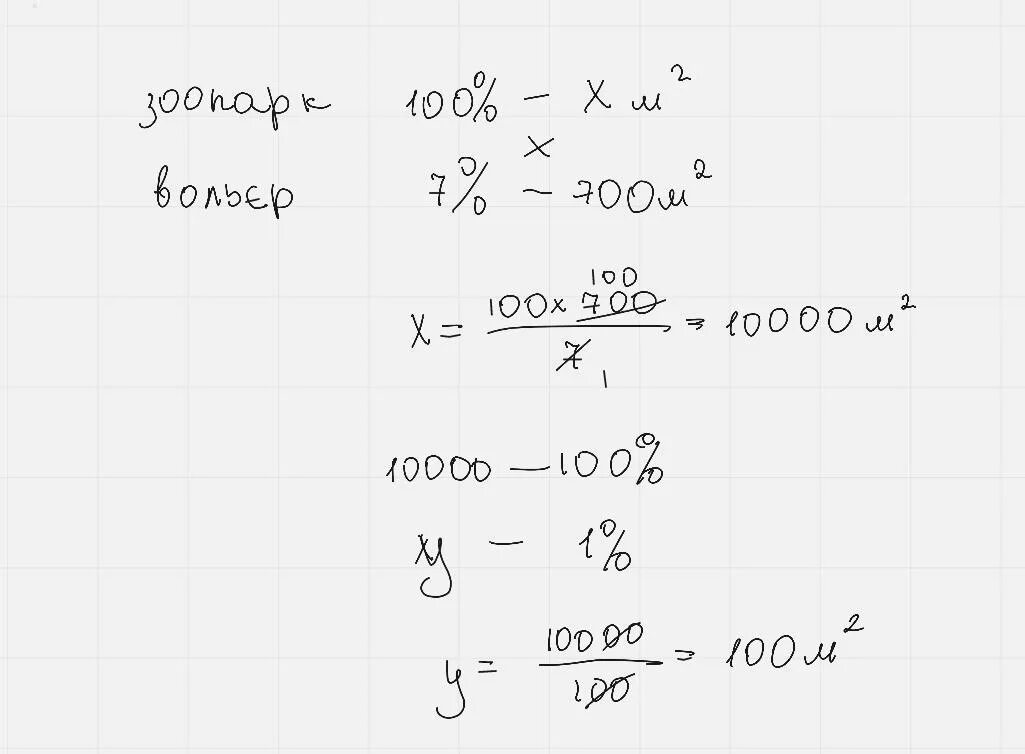 зоопарк 100% - x м²
x
вольер 7% - 700 м²
100
x = 100 x 700 / 7 = 10000 м²
1
10000 - 100%
xy - 1%
y = 10000 / 100 = 100 м²